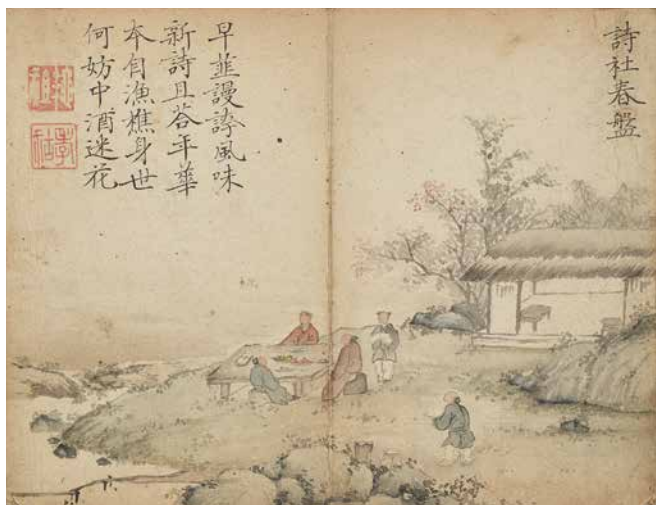 詩社春盤
早韭謾誇風味
新詩且荅年華
本自漁樵身世
何妨中酒迷花